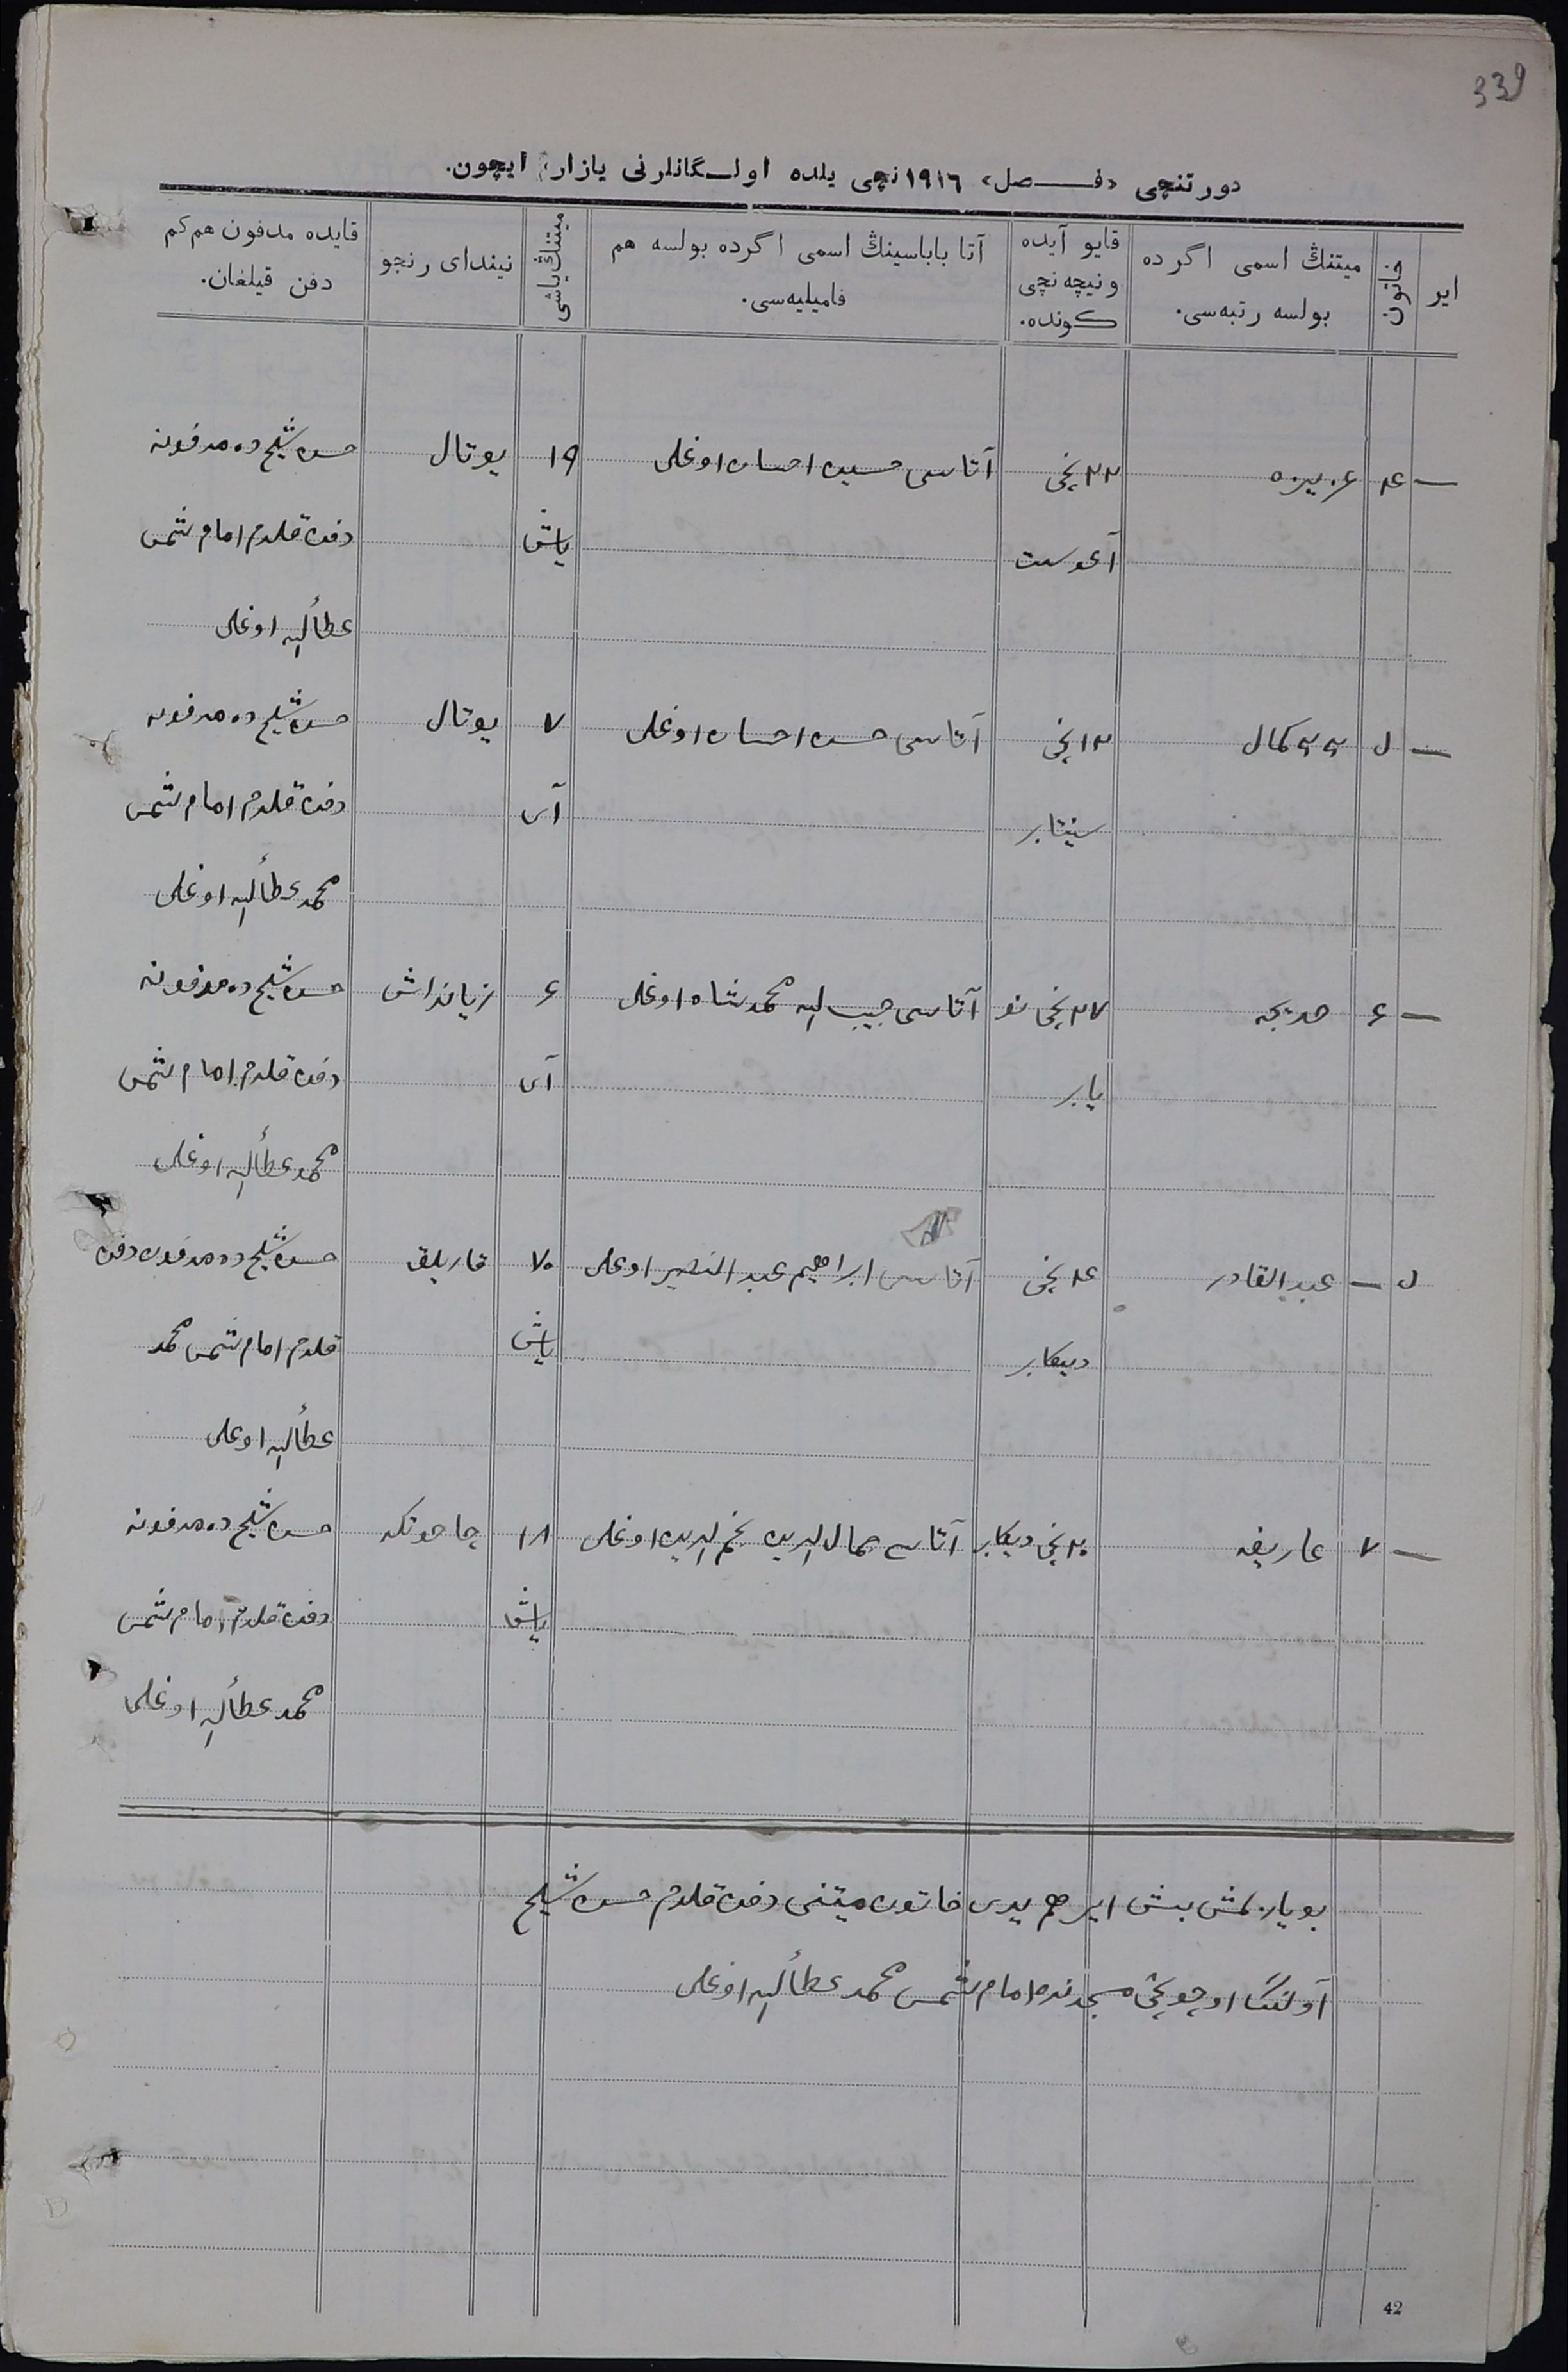 339
دورتنچی «فصل» ١٩١٦نچی یلده اولـگانلرنی یازار ایچون.
ایر
خاتون
میتنڭ اسمی اگرده
بولسه رتبه‌سی.
قایو آیده
ونیچه نچی
كونده.
آتا باباسینڭ اسمی اگرده بولسه هم
فامیلیه‌سی.
میتنڭ یاشی
نیندای رنجو
قایده مدفون هم كم
دفن قیلغان.
— ۴ عزیزه ٢٢ نچی آتاسی حسین احسان اوغلی ١٩ یوتال حسن شیخ ده مدفونه
آغوست یاش دفن قلدم امام شمس
عطاالله اوغلی
— کمال ١٢ نچی آتاسی حسن احسان اوغلی ٧ یوتال حسن شیخ ده مدفونه
سینتابر آی دفن قلدم امام شمس
محمد عطاالله اوغلی
— ۶ خدیجه ٢٧ نچی نو آتاسی حبیب الله محمدشاه اوغلی ۶ زیانداش حسن شیخ ده مدفونه
یابر آی دفن قلدم امام شمس
محمد عطاالله اوغلی
— عبدالقادر ١۴ نچی آتاسی ابراهیم عبدالنصیر اوغلی ٧٠ قاریلق حسن شیخ ده مدفون دفن
دیكابر یاش قلدم امام شمس محمد
عطاالله اوغلی
— ٧ عاریفه ٢٠ نچی دیكابر آتاسی جمال الدین نجم الدین اوغلی ١٨ چاحوتكه حسن شیخ ده مدفونه
یاش دفن قلدم امام شمس
محمد عطاالله اوغلی
بو یازلمش بش ایر هم یدی خاتون میتنی دفن قلدم حسن شیخ
آولینڭ اوچونچی مسجدنده امام شمس محمد عطاالله اوغلی
42